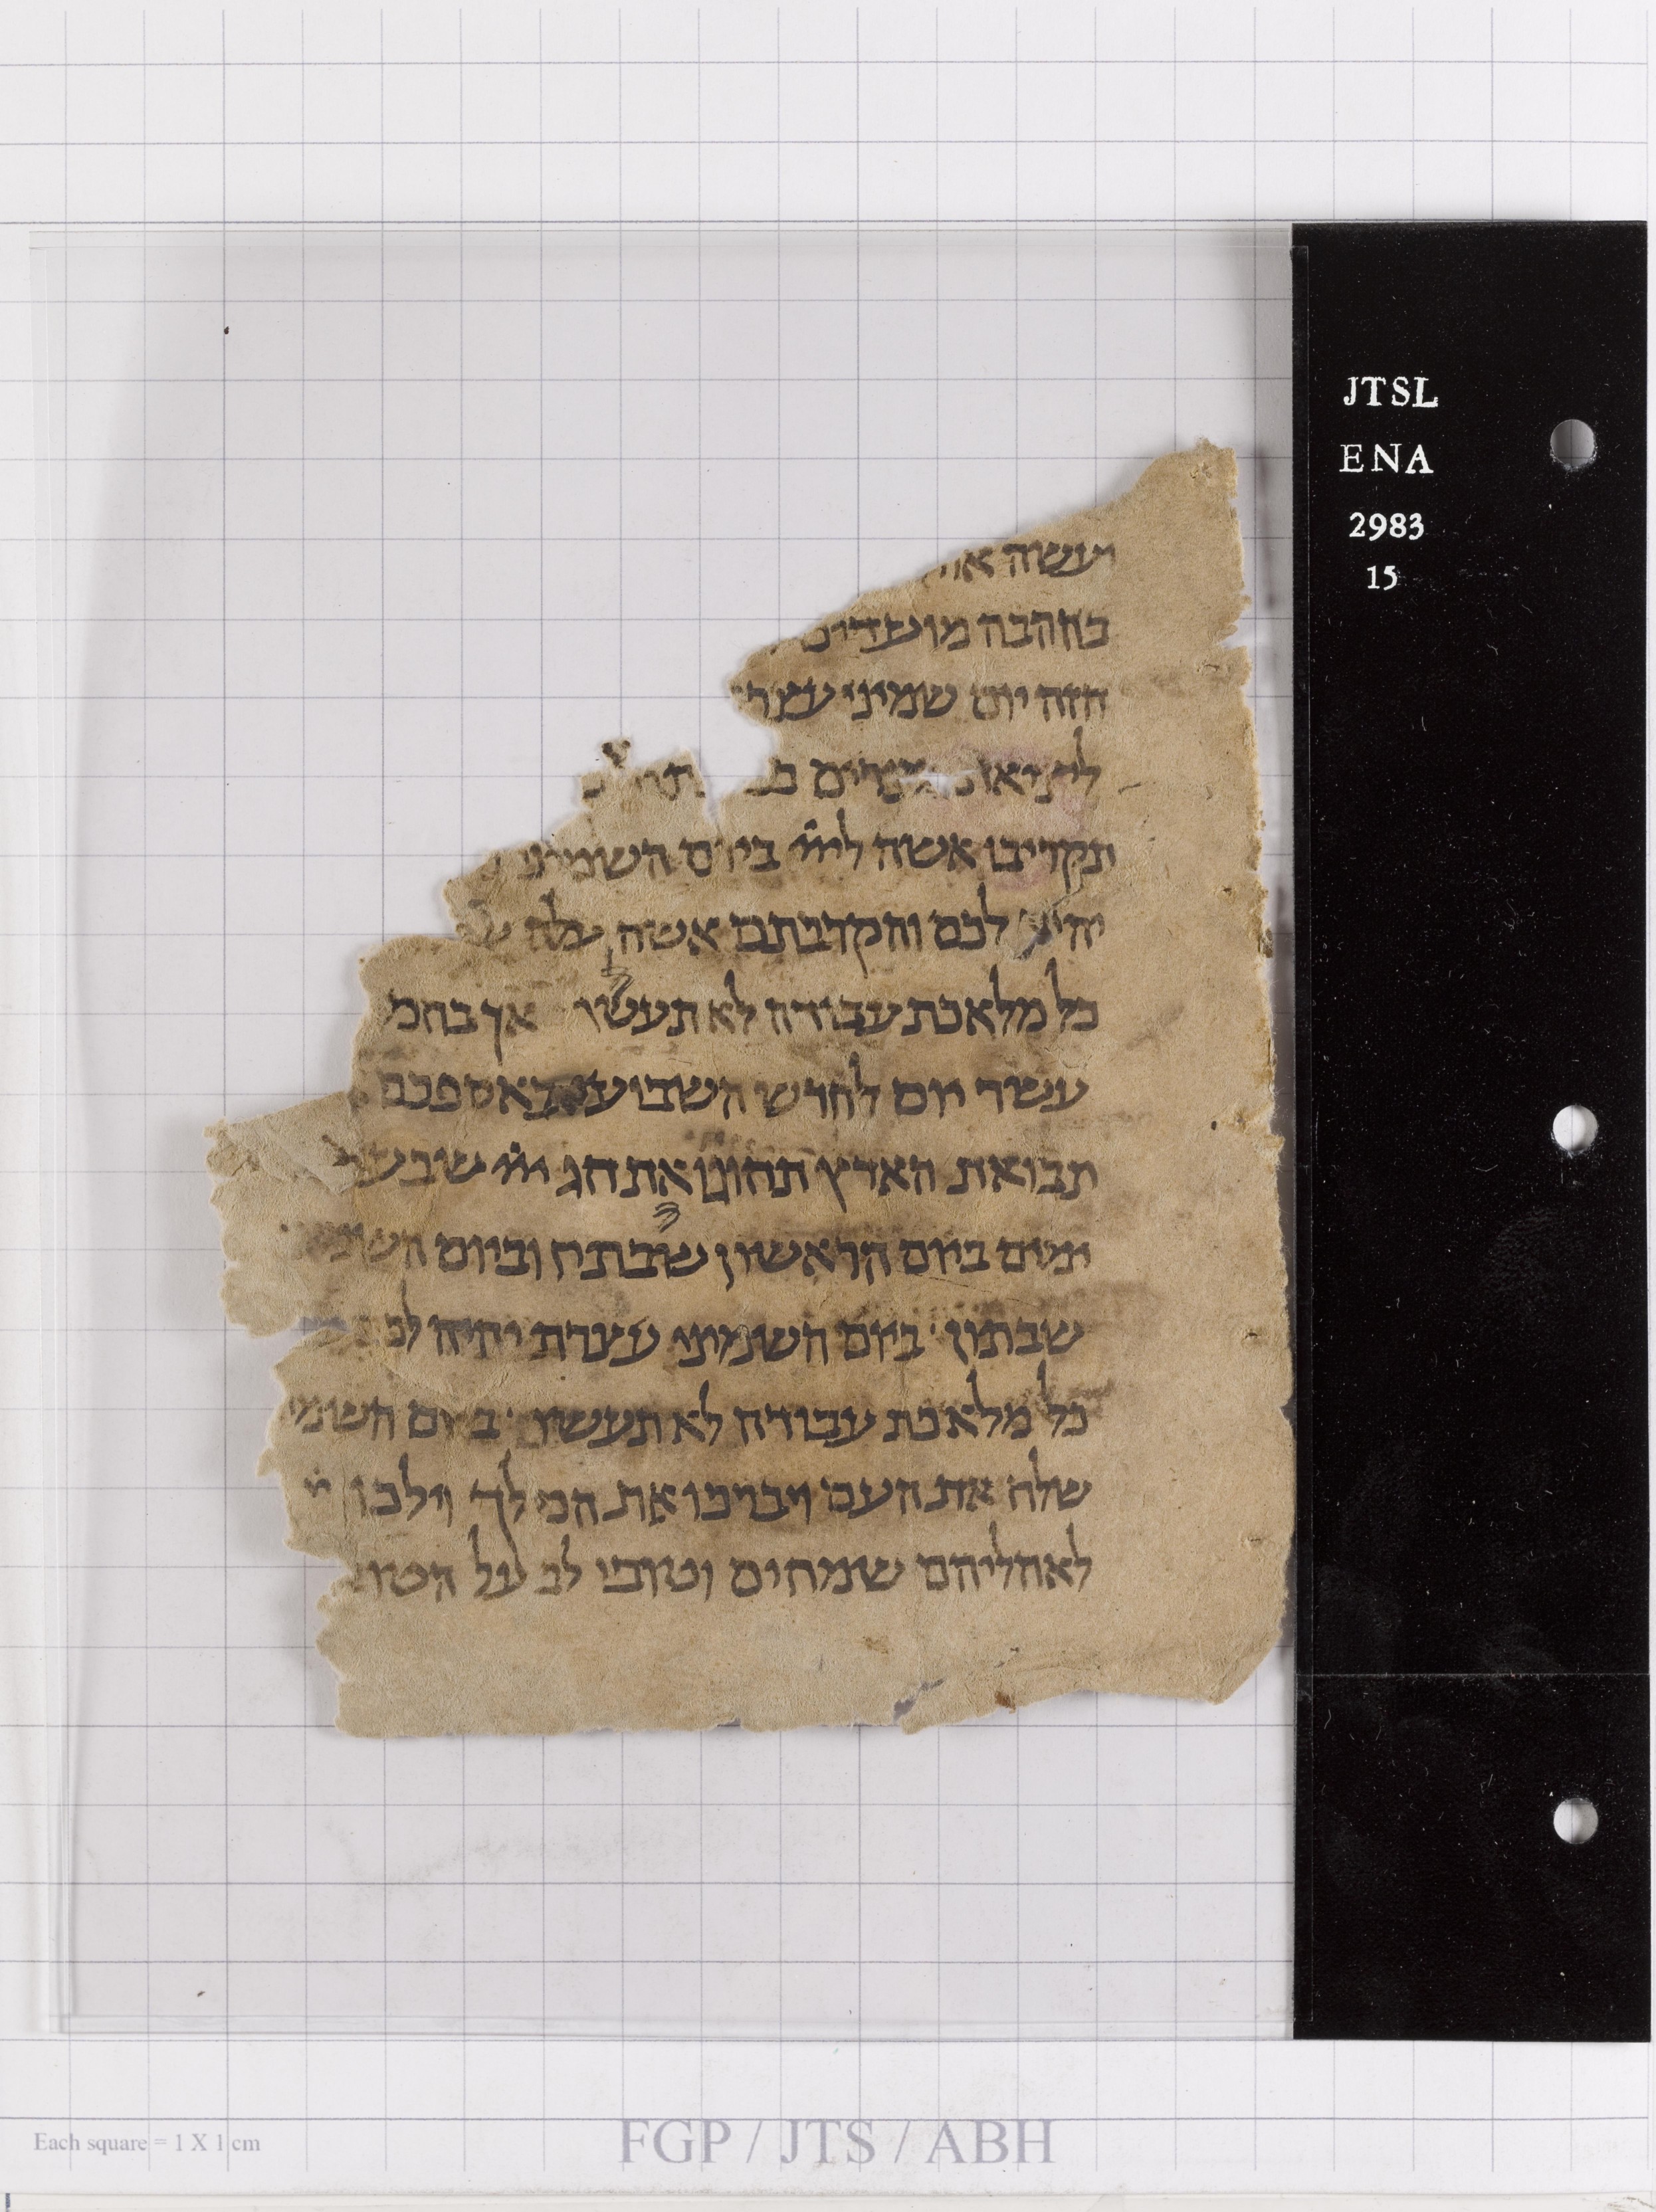 ועשה
באהבה מועדים
הזה יום שמיני עצר
ליציאת מצרים
תקריבו אשה לייי ביום השמיני
יהיה לכם והקרבתם אשה עלה
כל מלאכת עבודה לא תעשו אך בחמ
עשר יום לחדש השבועי באספכם
תבואת הארץ תחוגו את חג ייי שבעת
ימים ביום הראשון שבתח וביום השמי
שבתון ביום השמיני עצרת יהיה לכם
כל מלאכת עבודה לא תעשו ביום השמי
שלח את העם ויברכו את המלך וילכו
לאהליהם שמחים וטובי לב על הטוב
JTSL
ENA
2983
15
Each square = 1 X 1 cm
FGP / JTS / ABH